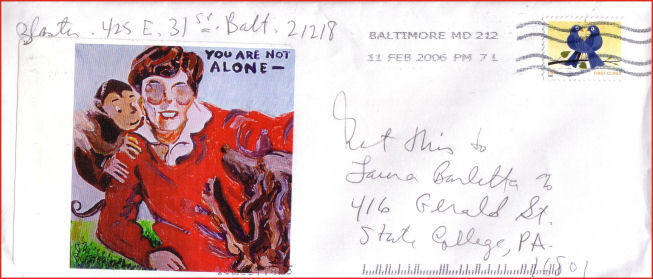 425 E. 31 st. Balt. 21218
BALTIMORE MD 212
11 FEB 2006 PM 7 L
FIRST CLASS
YOU ARE NOT
ALONE—
this to
Laura Barletta
416 Gerald St.
State College, PA.
16801